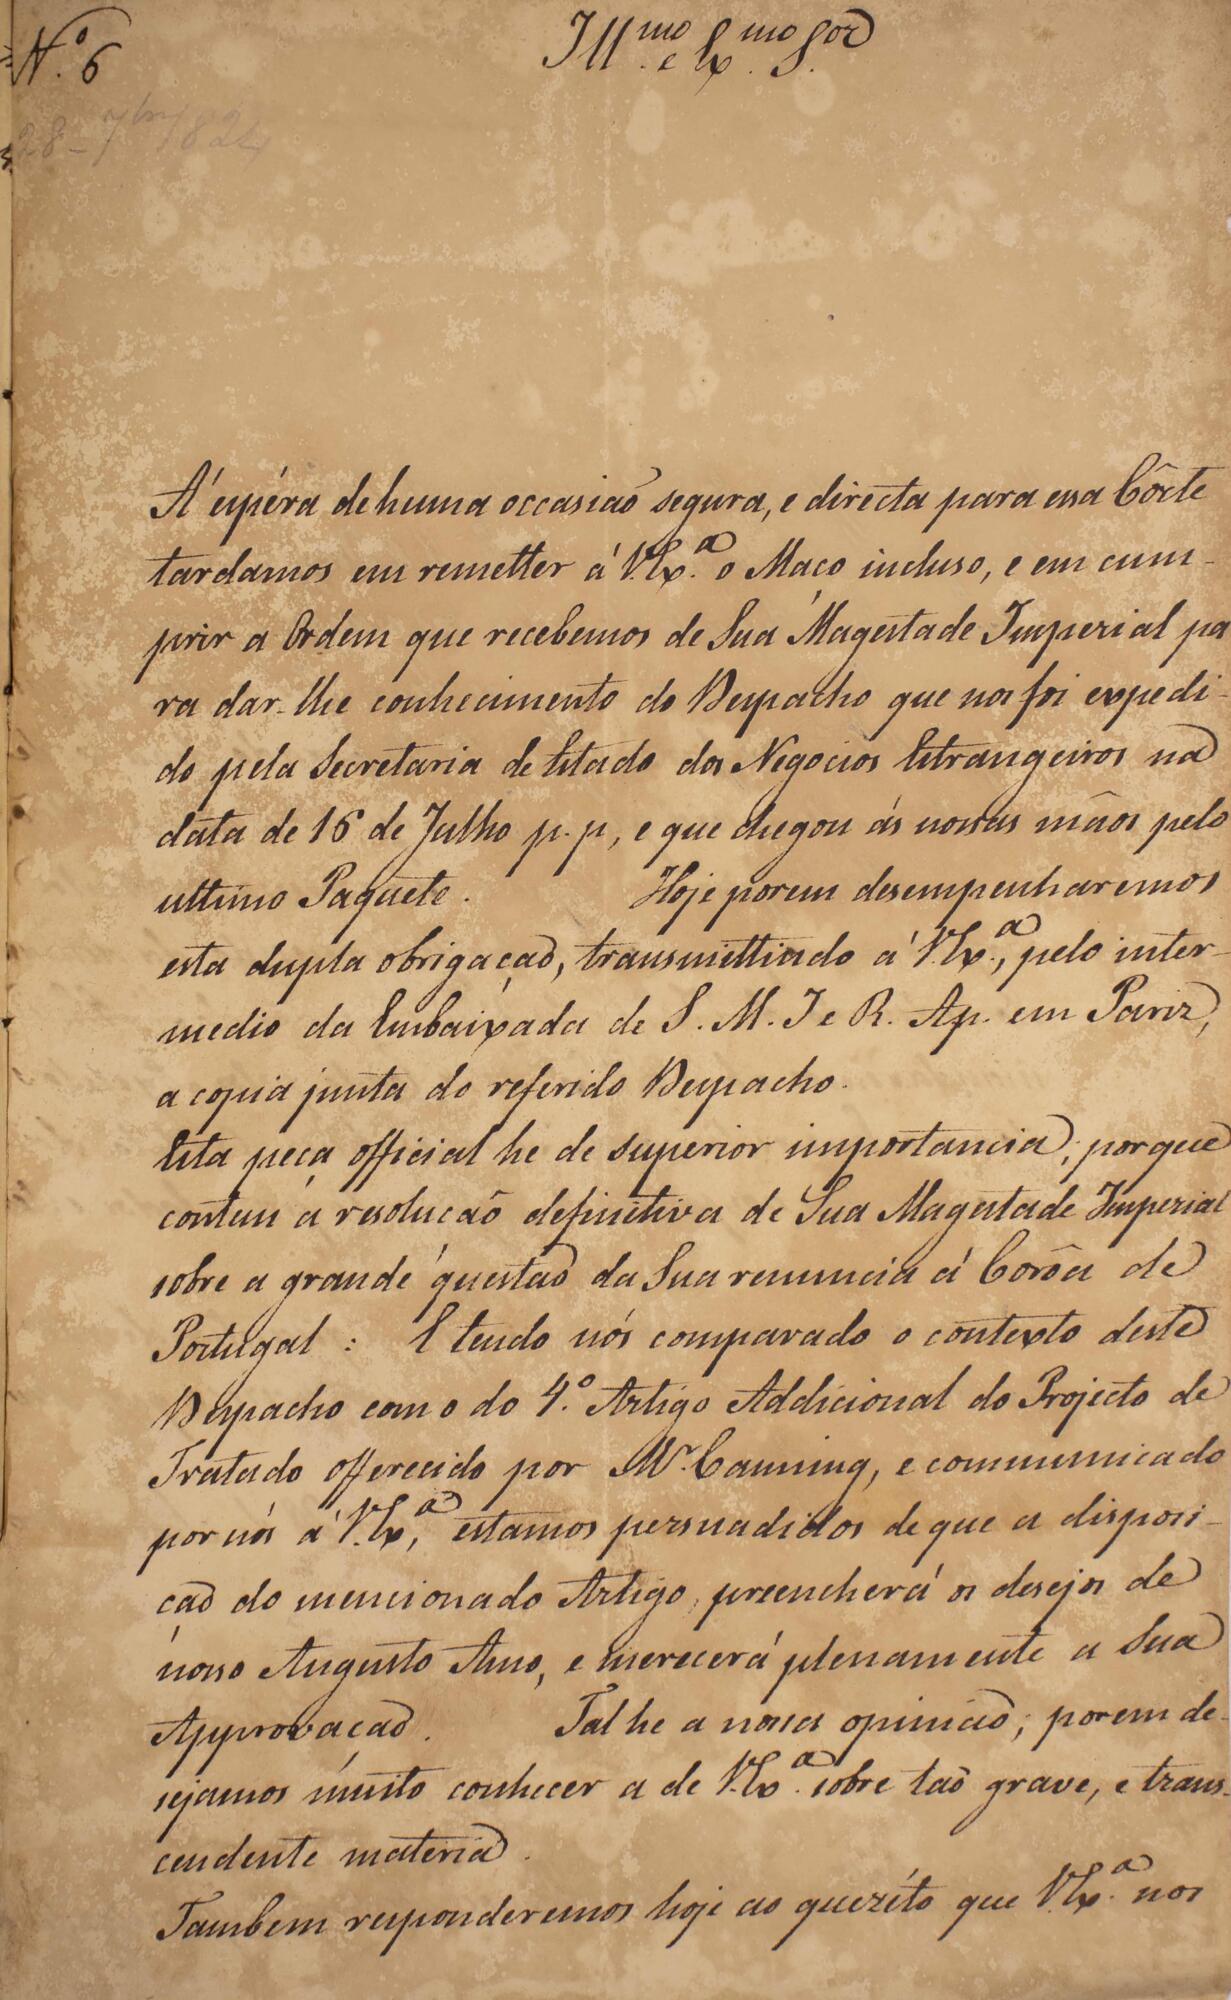 N.º 6
Ill.mo e Ex.mo S.or
28 - 7br 1824
Á espéra de huma occasião segura, e directa para essa Côrte
tardamos em remetter á V.Ex.ª o Maço incluso, e em cum-
prir a Ordem que recebemos de Sua Magestade Imperial pa
ra dar-lhe conhecimento do Despacho que nos foi expedi-
do pela Secretaria de Estado dos Negocios Estrangeiros na
data de 16 de Julho p.p, e que chegou ás nossas mãos pelo
ultimo Paquete. Hoje porem desempenharemos
esta dupla obrigação, transmittindo á V.Ex.ª, pelo inter-
medio da Embaixada de S. M. I e R. Ap. em Pariz,
a copia junta do referido Despacho.
Esta peça official he de superior importancia; porque
contem a resolução definitiva de Sua Magestade Imperial
sobre a grande questão da Sua renuncia á Corôa de
Portugal: E tendo nós comparado o contexto deste
Despacho com o do 4.º Artigo Addicional do Projecto de
Tratado offerecido por Mr. Canning, e communicado
por nós á V.Ex.ª, estamos persuadidos de que a disposi-
ção do mencionado Artigo, preencherá os desejos de
nosso Augusto Amo, e merecerá plenamente a Sua
Approvação. Tal he a nossa opinião; porem de-
sejamos muito conhecer a de V.Ex.ª sobre tão grave, e trans-
cendente materia.
Tambem responderemos hoje ao quezíto que V.Ex.ª nos